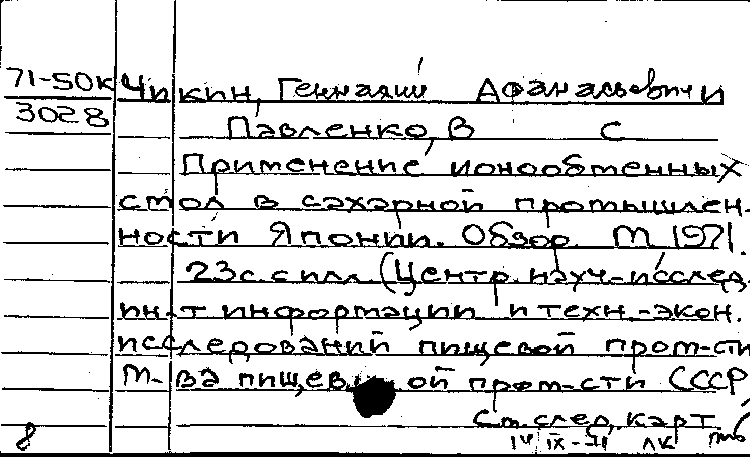 71-50к Чикин, Геннадий Афанасьевич и
3028 Павленко, В С
Применение ионообменных
смол в сахарной промышлен-
ности Японии. Обзор. М 1971.
23с. с илл (Центр. науч.-исслед.
ин-т информации и техн.-экон.
исследований пищевой пром-сти
М-ва пищев ой пром-сти СССР
См. след. карт.
8 IV IX-71 ЛК